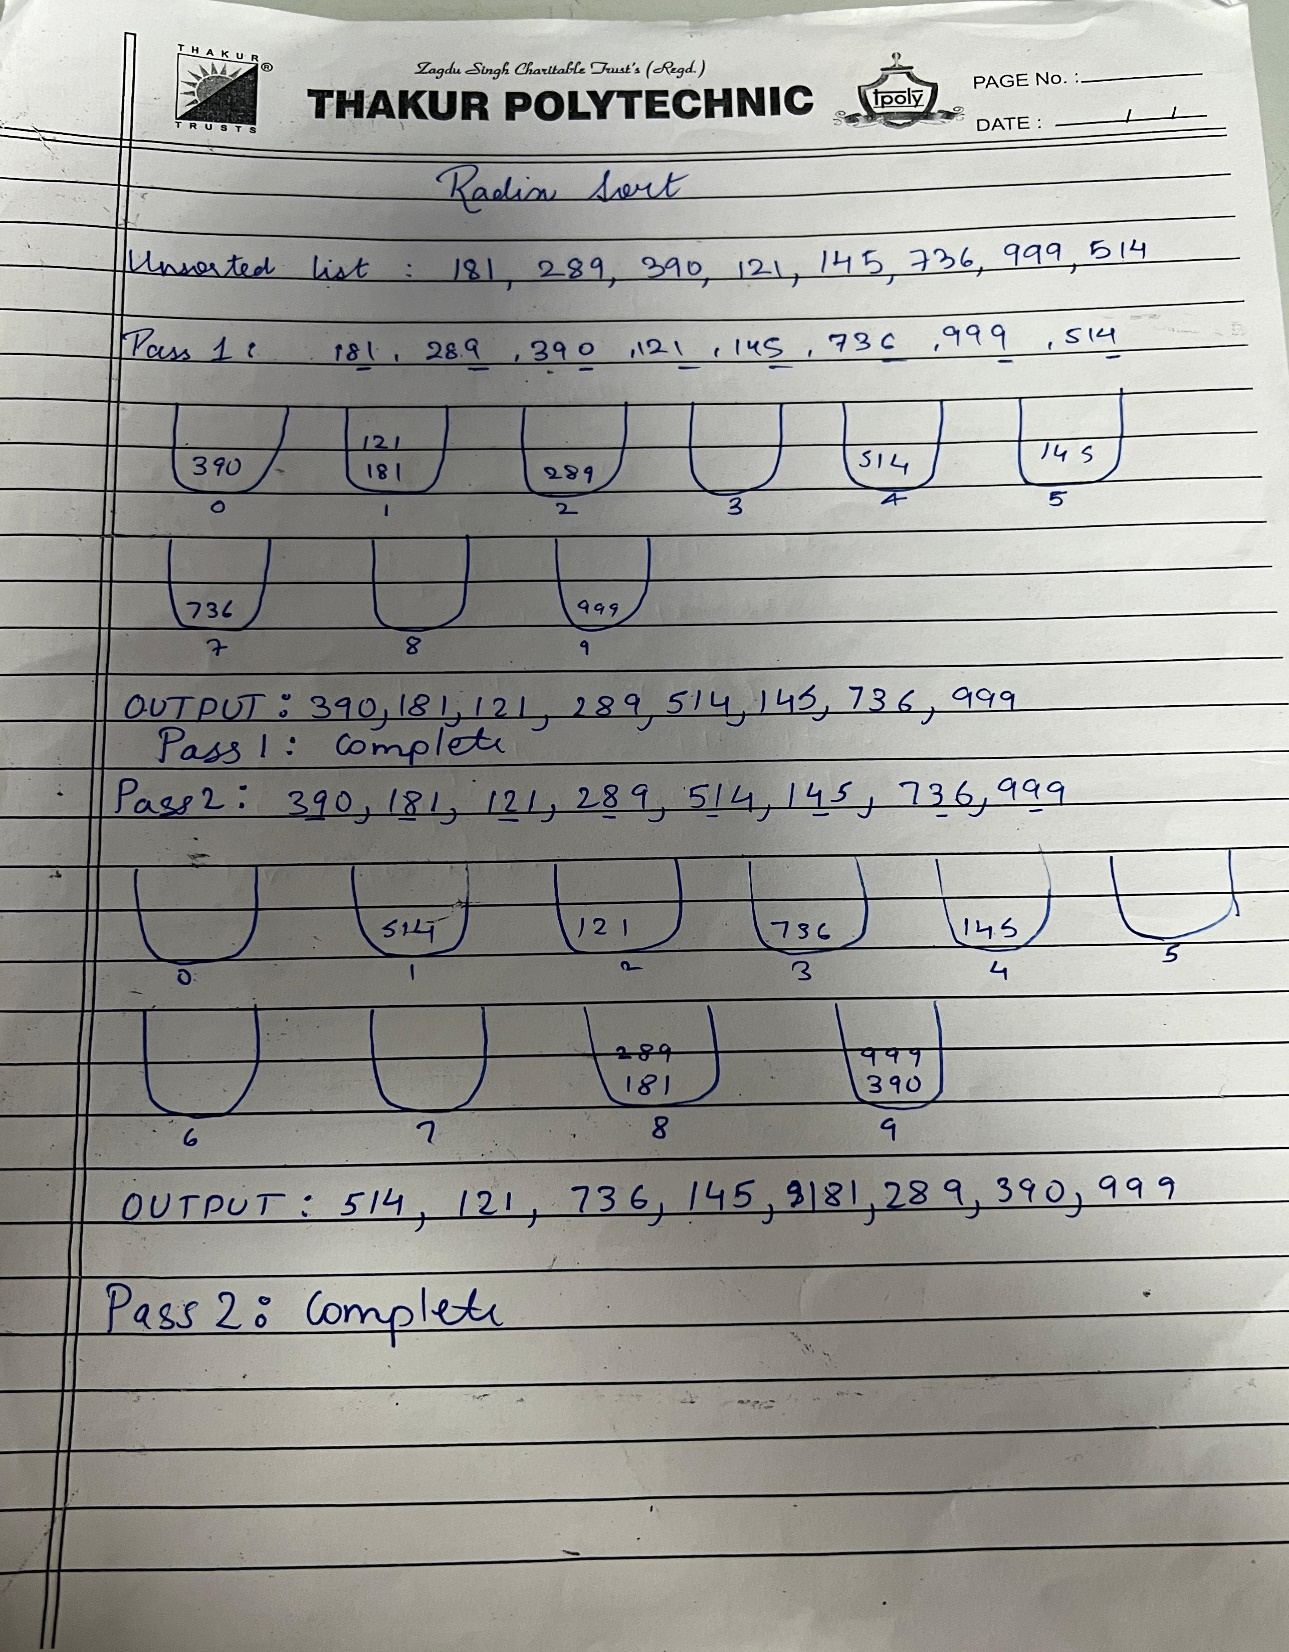 THAKUR
TRUSTS
®
Zagdu Singh Charitable Trust's (Regd.)
THAKUR POLYTECHNIC
tpoly
PAGE No. :
DATE : / /
Radix Sort
Unsorted list : 181, 289, 390, 121, 145, 736, 999, 514
Pass 1: 181, 289, 390, 121, 145, 736, 999, 514
121
390 181 289 514 145
0 1 2 3 4 5
736 999
7 8 9
OUTPUT : 390, 181, 121, 289, 514, 145, 736, 999
Pass 1 : Complete
Pass 2 : 390, 181, 121, 289, 514, 145, 736, 999
514 121 736 145
0 1 2 3 4 5
289 999
181 390
6 7 8 9
OUTPUT : 514, 121, 736, 145, 181, 289, 390, 999
Pass 2 : Complete